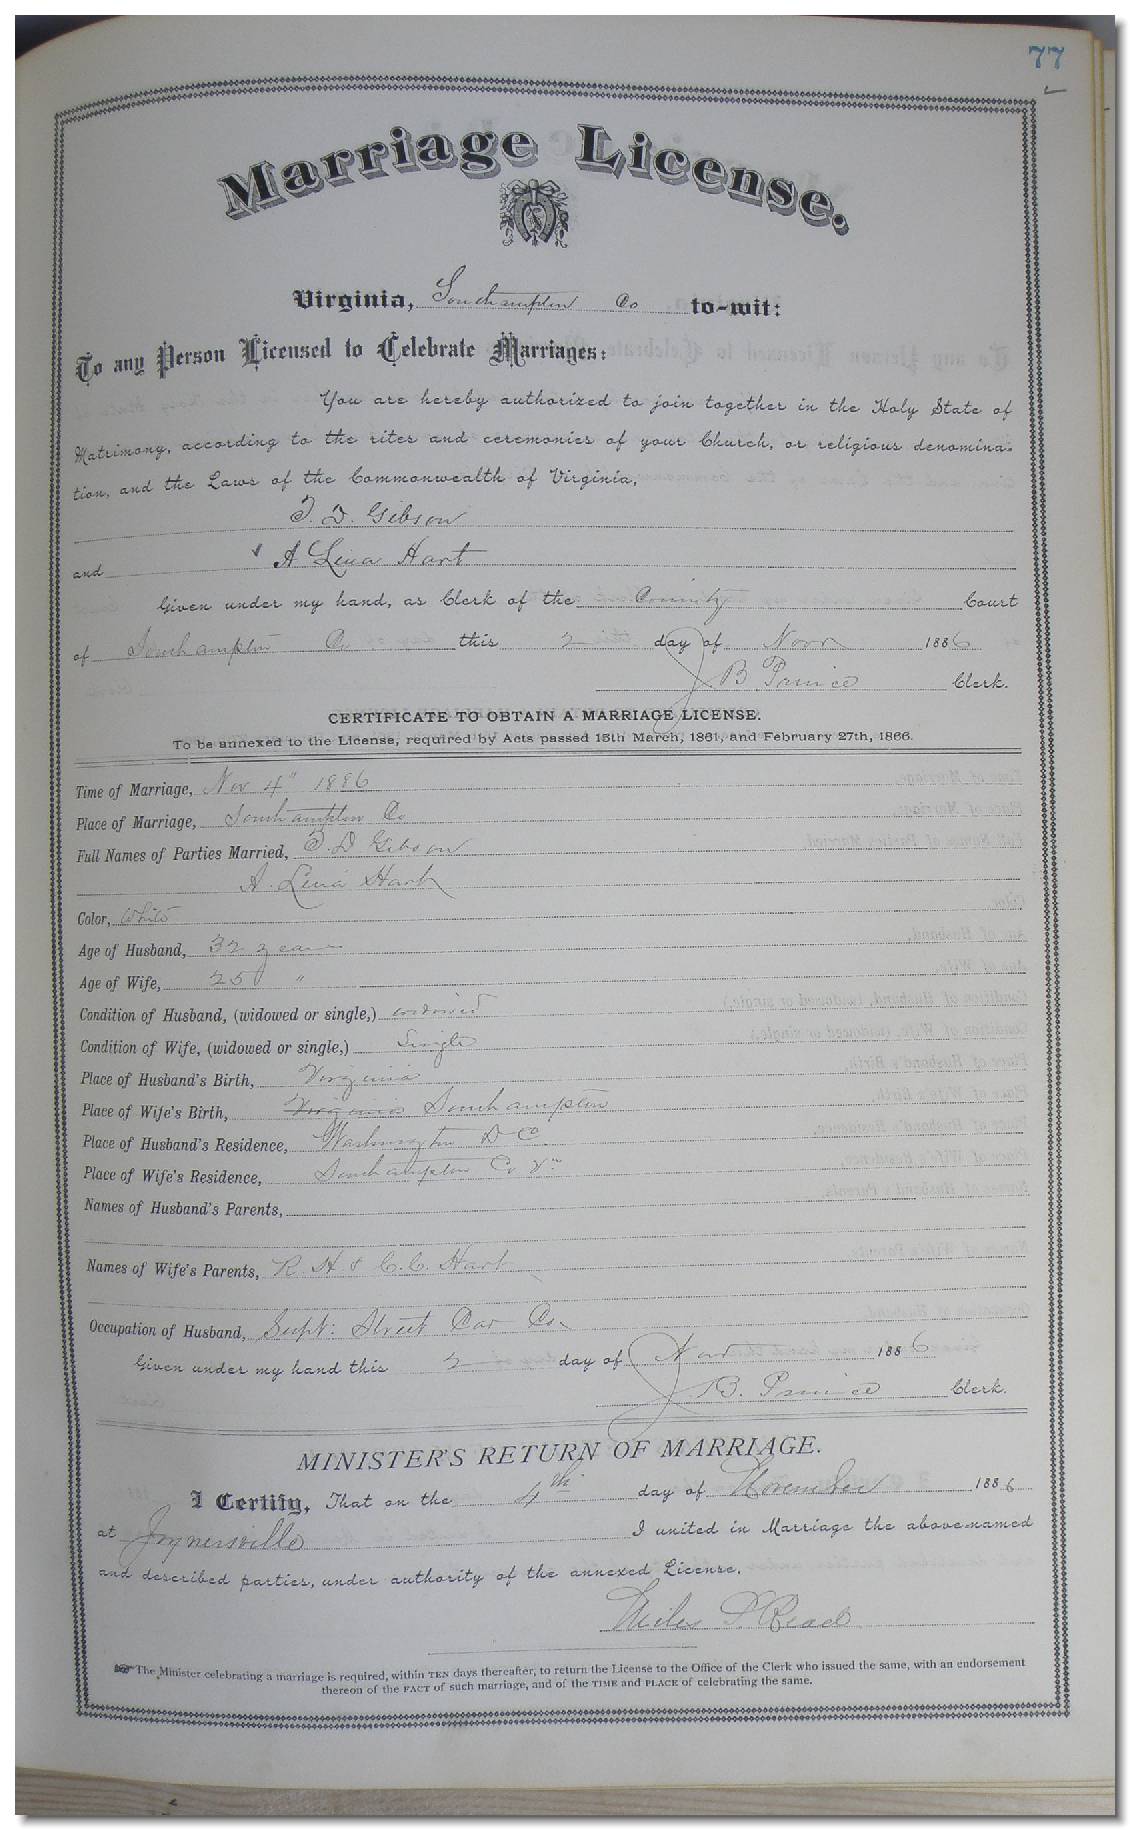 77
Marriage License.
Virginia, Southampton Co to-wit:
To any Person Licensed to Celebrate Marriages:
You are hereby authorized to join together in the Holy State of
Matrimony, according to the rites and ceremonies of your Church, or religious denomina-
tion, and the Laws of the Commonwealth of Virginia,
T. D. Gibson
and A Lena Hart
Given under my hand, as Clerk of the County Court
of Southampton Co this 2 day of Novr 1886
J B Prince Clerk.
CERTIFICATE TO OBTAIN A MARRIAGE LICENSE.
To be annexed to the License, required by Acts passed 15th March, 1861, and February 27th, 1866.
Time of Marriage, Nov 4" 1886
Place of Marriage, Southampton Co
Full Names of Parties Married, T. D Gibson
A. Lena Hart
Color, White
Age of Husband, 32 years
Age of Wife, 25 "
Condition of Husband, (widowed or single,) widowed
Condition of Wife, (widowed or single,) Single
Place of Husband's Birth, Virginia
Place of Wife's Birth, Virginia Southampton
Place of Husband's Residence, Washington D C
Place of Wife's Residence, Southampton Co Va
Names of Husband's Parents,
Names of Wife's Parents, R. H & C. C. Hart
Occupation of Husband, Supt: Street Car Co.
Given under my hand this 2 day of Nov 1886
J. B. Prince Clerk.
MINISTER'S RETURN OF MARRIAGE.
I Certify, That on the 4th day of November 1886
at Joynersville I united in Marriage the above-named
and described parties, under authority of the annexed License.
Miles P. Read
The Minister celebrating a marriage is required, within TEN days thereafter, to return the License to the Office of the Clerk who issued the same, with an endorsement
thereon of the FACT of such marriage, and of the TIME and PLACE of celebrating the same.